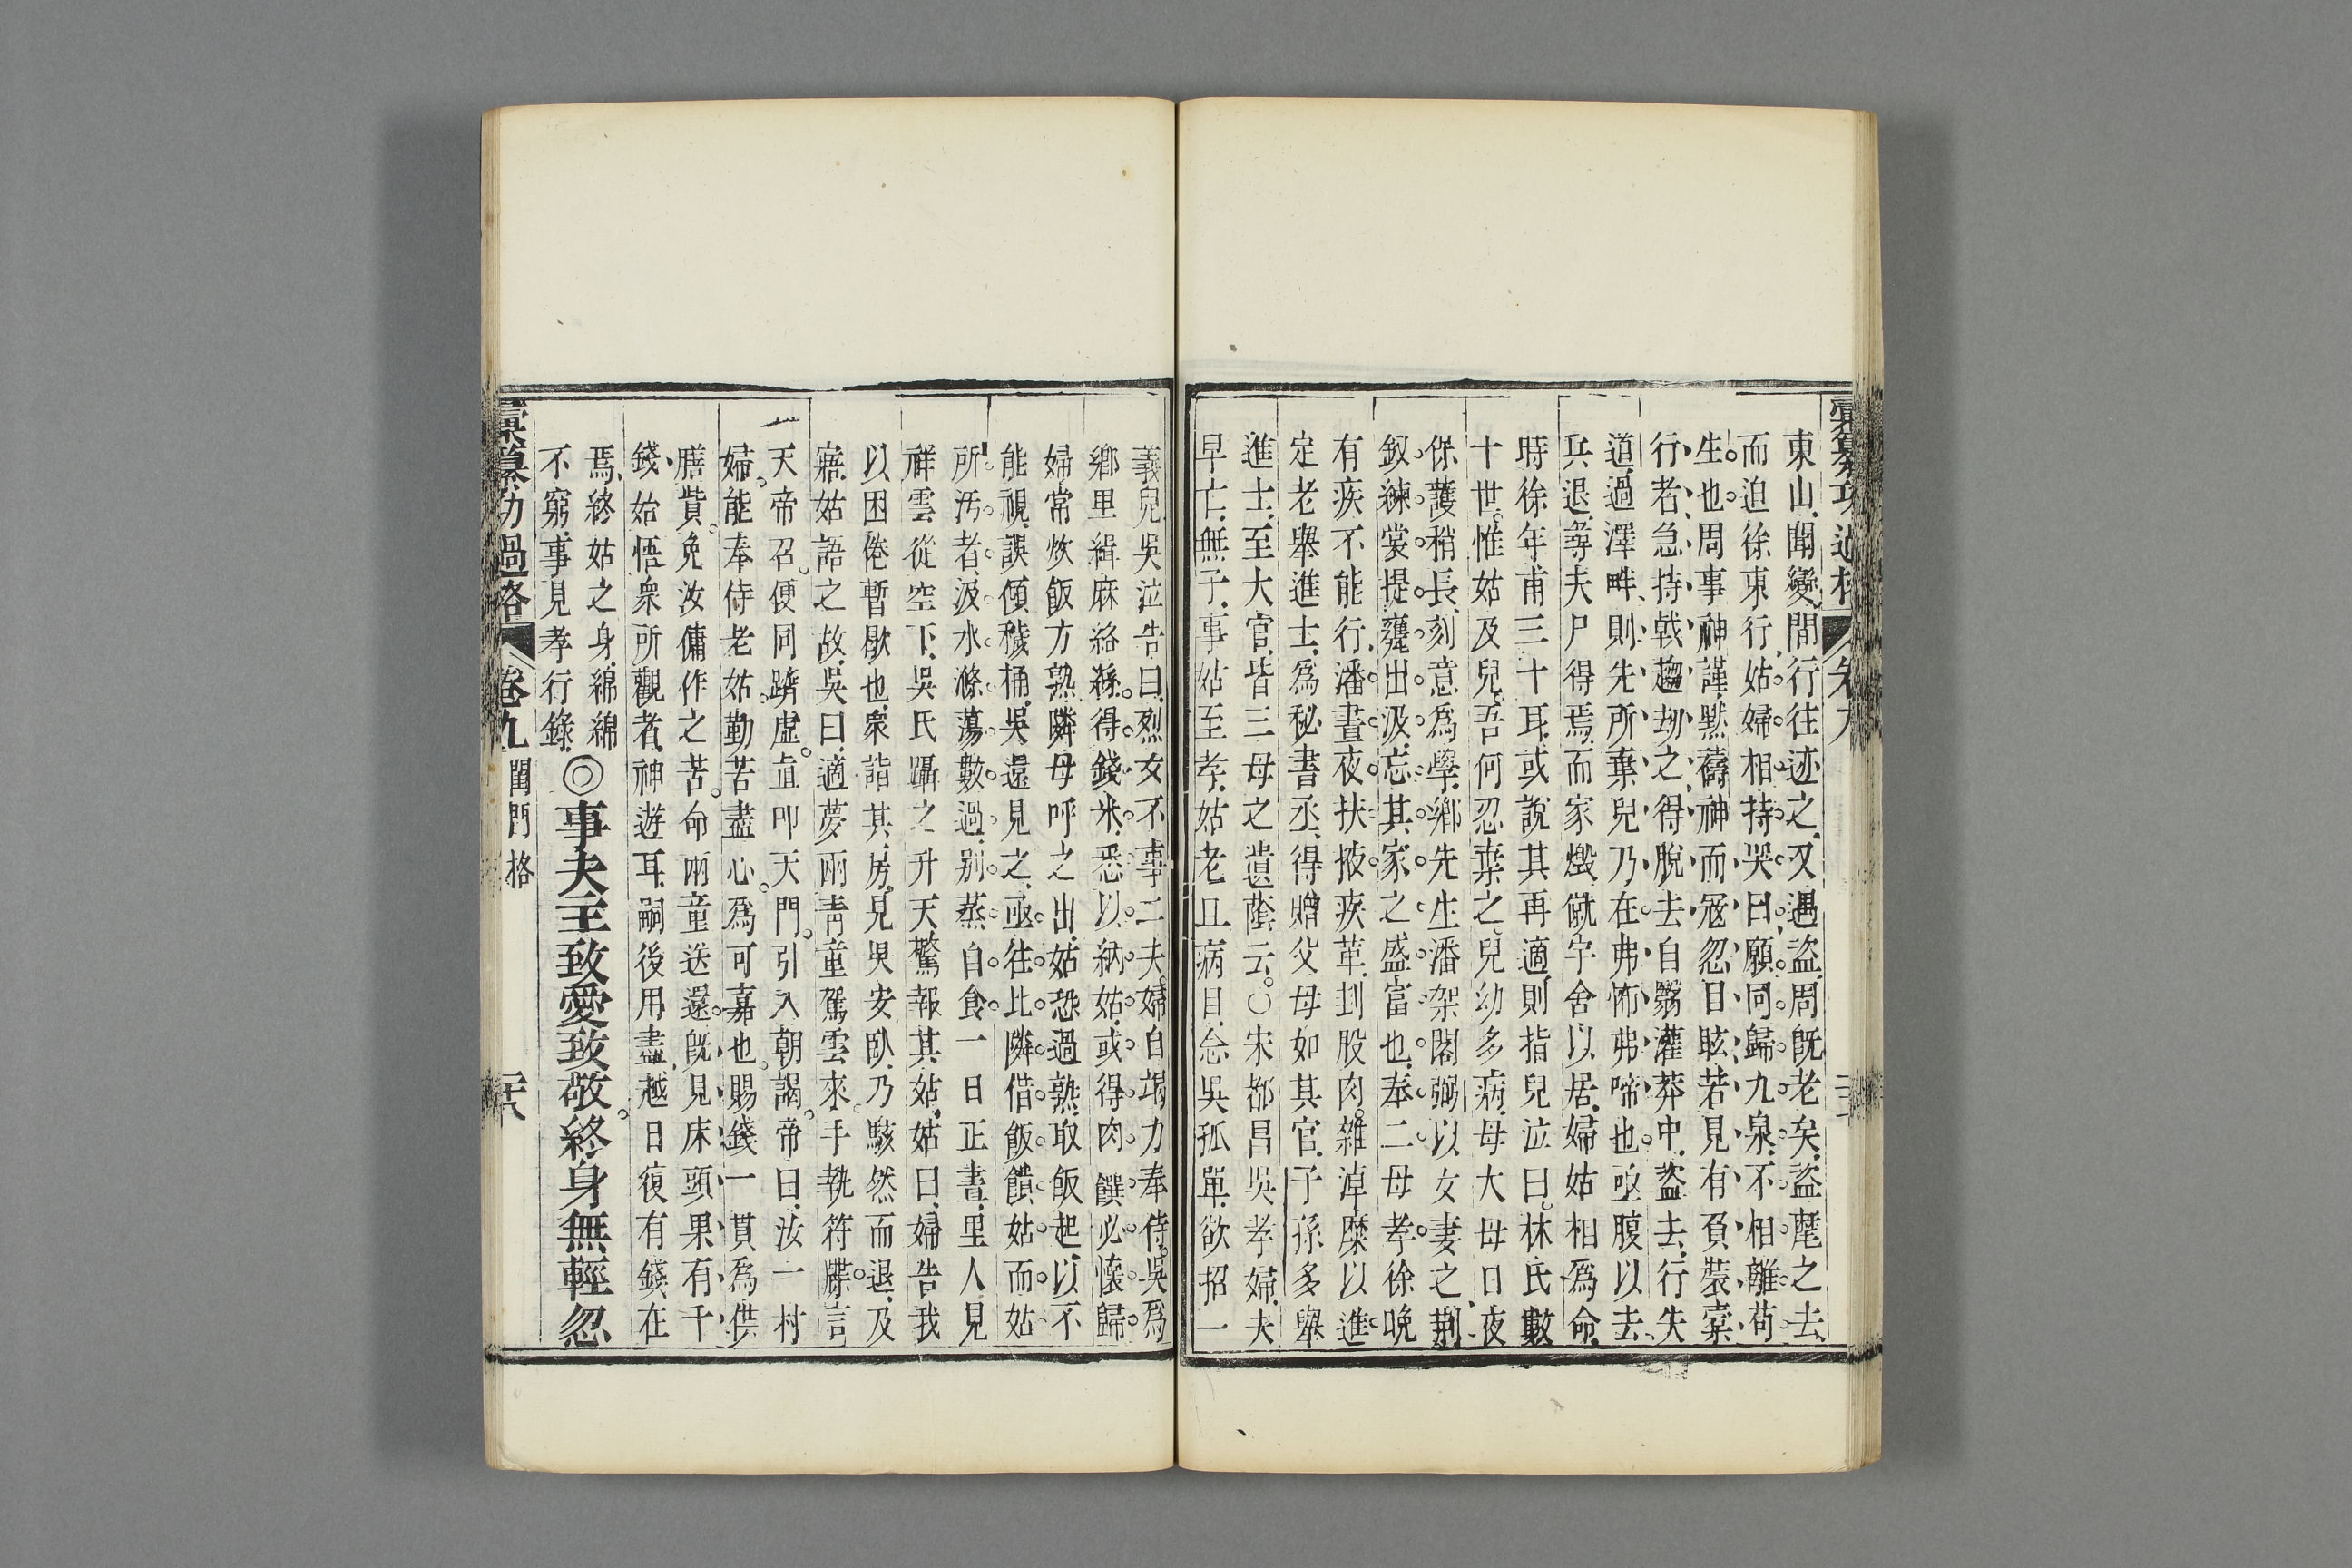 彙纂功過格 卷九
東山聞變間行往迹之又遇盜周旣老矣盜麾之去
而迫徐東行姑婦相持哭曰願同歸九泉不相離苟
生也周事神謹默禱神而寇忽目眩若見有負裝橐
行者急持戟趨劫之得脫去自翳灌莽中盜去行失
道過澤畔則先所棄兒乃在弗怖弗啼也亟腹以去
兵退尋夫尸得焉而家燬僦宇舍以居婦姑相爲命
時徐年甫三十耳或說其再適則指兒泣曰林氏數
十世惟姑及兒吾何忍棄之兒幼多病母大母日夜
保護稍長刻意爲學鄉先生潘架閣弼以女妻之荆
釵練裳提甕出汲忘其家之盛富也奉二母孝徐晚
有疾不能行潘晝夜扶掖疾革刲股肉雜淖糜以進
定老舉進士爲秘書丞得贈父母如其官子孫多舉
進士至大官皆三母之遺蔭云○宋都昌吳孝婦夫
早亡無子事姑至孝姑老且病目念吳孤單欲招一
義兒吳泣告曰烈女不事二夫婦自竭力奉侍吳爲
鄉里緝麻絡絲得錢米悉以納姑或得肉饌必懷歸
婦常炊飯方熟隣母呼之出姑恐過熟取飯起以不
能視誤傾穢桶吳還見之亟往比隣借飯饋姑而姑
所汚者汲水滌蕩數過別蒸自食一日正晝里人見
祥雲從空下吳氏躡之升天驚報其姑姑曰婦告我
以困倦暫歇也衆詣其房見吳安臥乃駭然而退及
寤姑語之故吳曰適夢兩靑童駕雲來手執符牒言
天帝召便同躋虛直叩天門引入朝謁帝曰汝一村
婦能奉侍老姑勤苦盡心爲可嘉也賜錢一貫爲供
膳貲免汝傭作之苦命兩童送還旣見床頭果有千
錢始悟衆所觀者神遊耳嗣後用盡越日復有錢在
焉終姑之身綿綿
不窮事見孝行錄
◎事夫主致愛致敬終身無輕忽
彙纂功過格 卷九 閨門格